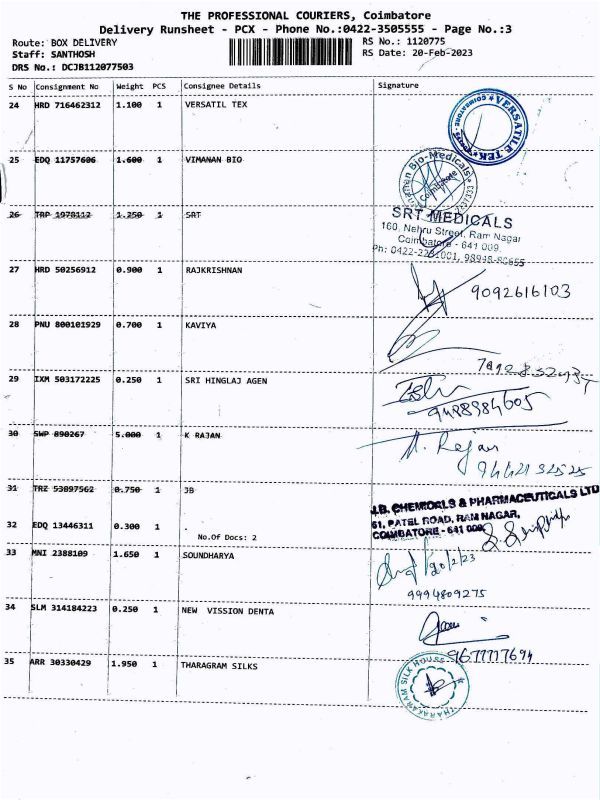 THE PROFESSIONAL COURIERS, Coimbatore
Delivery Runsheet - PCX - Phone No.:0422-3505555 - Page No.:3
Route: BOX DELIVERY
RS No.: 1120775
Staff: SANTHOSH
RS Date: 20-Feb-2023
DRS No.: DCJB112077503
S No Consignment No Weight PCS Consignee Details Signature
24 HRD 716462312 1.100 1 VERSATIL TEX
VERSATILE TEX COIMBATORE
25 EDQ 11757606 1.600 1 VIMANAN BIO
Bio-Medicals Coimbatore
26 TRP 1978112 1.250 1 SRT
SRT MEDICALS
160, Nehru Street, Ram Nagar
Coimbatore - 641 009.
27 HRD 50256912 0.900 1 RAJKRISHNAN
9092616103
28 PNU 800101929 0.700 1 KAVIYA
29 IXM 503172225 0.250 1 SRI HINGLAJ AGEN
9488984605
30 SWP 890267 5.000 1 K RAJAN
K. Rajan
31 TRZ 53897562 0.750 1 JB
J.B. CHEMICALS & PHARMACEUTICALS LTD
61, PATEL ROAD, RAM NAGAR,
COIMBATORE - 641 009.
32 EDQ 13446311 0.300 1
No.Of Docs: 2
33 MNI 2388109 1.650 1 SOUNDHARYA
20/2/23
9994809275
34 SLM 314184223 0.250 1 NEW VISSION DENTA
9677777694
35 ARR 30330429 1.950 1 THARAGRAM SILKS
SILK HOUSE